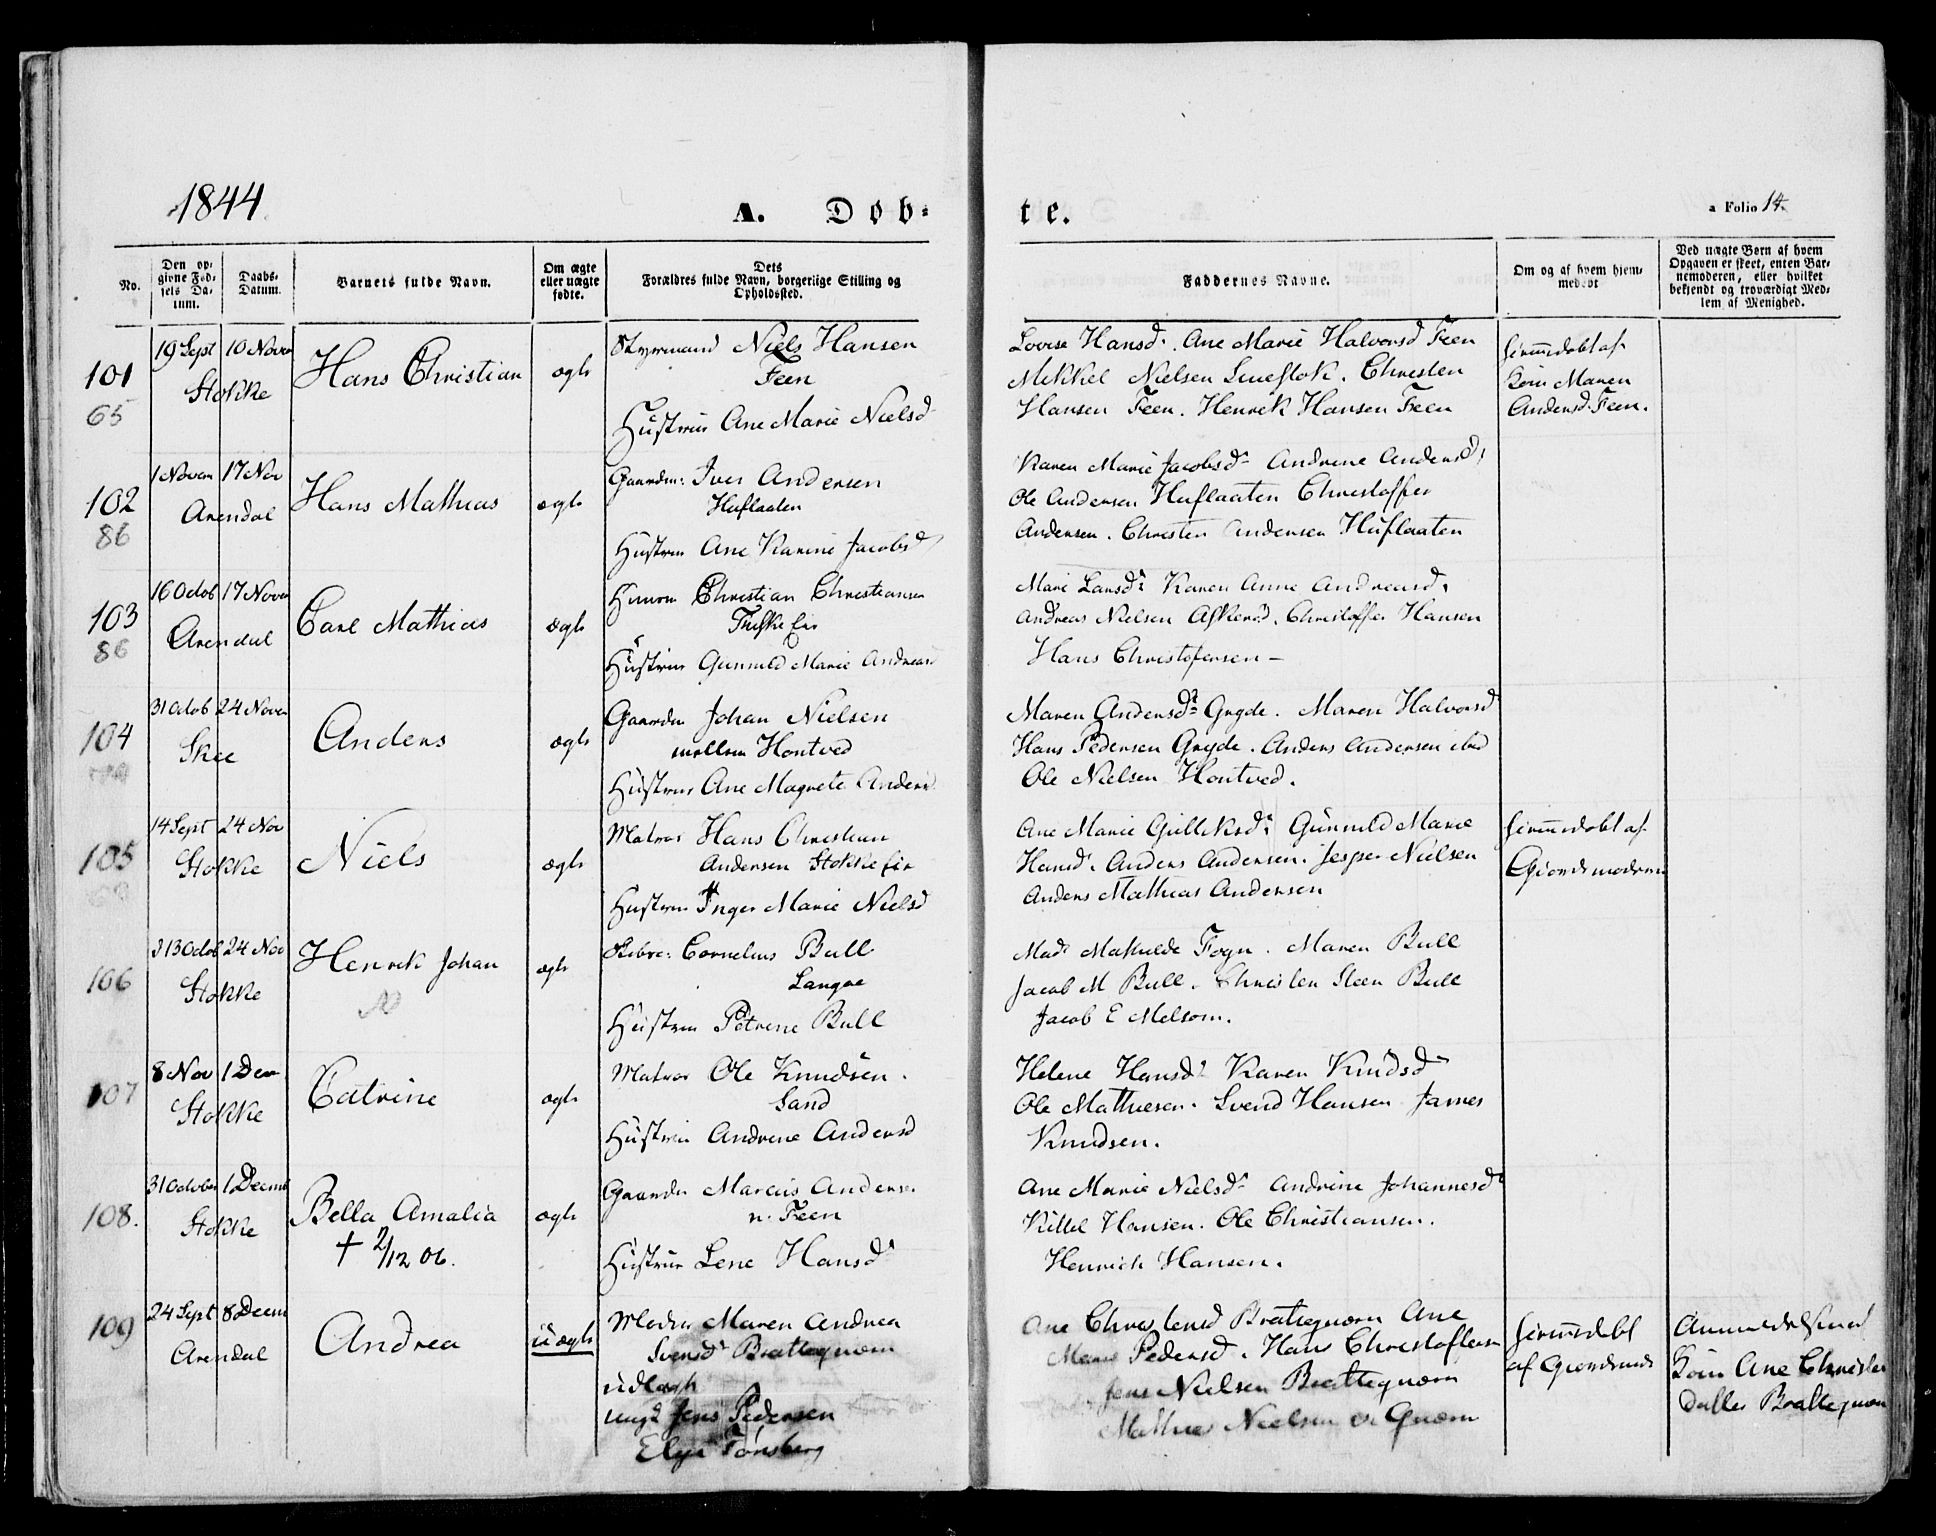 1844
A. Døb-
te.
a Folio 14.
No.
Den op-
givne Fød-
sels Da-
tum.
Daabs-
Datum.
Barnets fulde Navn.
Om ægte
eller uægte
fødte.
Dets
Forældres fulde Navn, borgerlige Stilling og
Opholdssted.
Faddernes Navne.
Om og af hvem hjem-
medøbt
Ved uægte Børn af hvem
Opgaven er skeet, enten Bar-
nemoderen, eller hvilket
bekjendt og troværdigt Med-
lem af Menighed.
101
65
19 Sept 10 Novem
Stokke
Hans Christian
ægte
Styrmand Niels Hansen
Feen
Hustrue Ane Marie Nielsd
Lovise Hansd. Ane Marie Halvorsd Feen
Mikkel Nielsen . Christen
Hansen Feen. Henrik Hansen Feen
hiemmedøbt af
Kone Maren
Andersd. Feen.
102
86
1 Novem 17 Nov
Arendal
Hans Mathias
ægte
Gaardm: Iver Andersen
Huflaaten
Hustrue Ane Karine Jacobsd
Karen Marie Jacobsd Andrine Andersd
Ole Andersen Huflaaten Christoffer
Andersen. Christen Andersen Huflaaten
103
86
16 Octob 17 Novem
Arendal
Carl Mathias
ægte
Christian Christiansen
Hustrue Gunnild Marie Andreasd
Marie Larsd Karen Anne Andreasd.
Andreas Nielsen Askerød. Christoffer Hansen
Hans Christofersen -
104
31 Octob 24 Novem
Skee
Anders
ægte
Gaardm Johan Nielsen
mellem Hontved
Hustrue Ane Magrete Andersd
Maren Andersd Gryde. Maren Halvorsd
Hans Pedersen Gryde. Anders Andersen ibid
Ole Nielsen Hontved.
105
14 Sept 24 Nov
Stokke
Niels
ægte
Matros Hans Christian
Andersen Stokke
Hustrue Inger Marie Nielsd
Ane Marie Gulliksd Gunnild Marie
Hansd. Anders Andersen. Jesper Nielsen
Anders Mathias Andersen
hiemmedøbt af
Giordemoderen
106
31 Octob 24 Nov
Stokke
Henrik Johan
ægte
Skibre: Cornelius Bull
Langøe
Hustrue Petrine Bull
Mad Mathilde Fogn. Maren Bull
Jacob M Bull. Christen Steen Bull
Jacob E Melsom.
107
8 Nov 1 Dec
Stokke
Catrine
ægte
Matros Ole Knudsen.
Sand
Hustrue Andrine Andersd
Helene Hansd Karen Knudsd
Ole Mathiesen. Svend Hansen James
Knudsen.
108.
31 October 1 Decemb
Stokke
Bella Amalia
† 2/12 06.
ægte
Gaardm Marcus Andersen
n: Feen
Hustrue Lene Hansd
Ane Marie Nielsd Andrine Johannesd
Kittel Hansen. Ole Christiansen.
Henrich Hansen.
109
24 Sept 8 Decem
Arendal
Andrea
uægte
Moder Maren Andrea
Svensd Bratteqnom
udlagt
ungk Jens Pedersen
Tønsberg
Ane Christensd Bratteqnom Ane
Marie Pedersd. Hans Christoffersen
Jens Nielsen Bratteqnom
Mathias Nielsen
hiemmedøbt
af Giordemod
Anmeldelsen ved
Kone Ane Christen
datter Bratteqnom